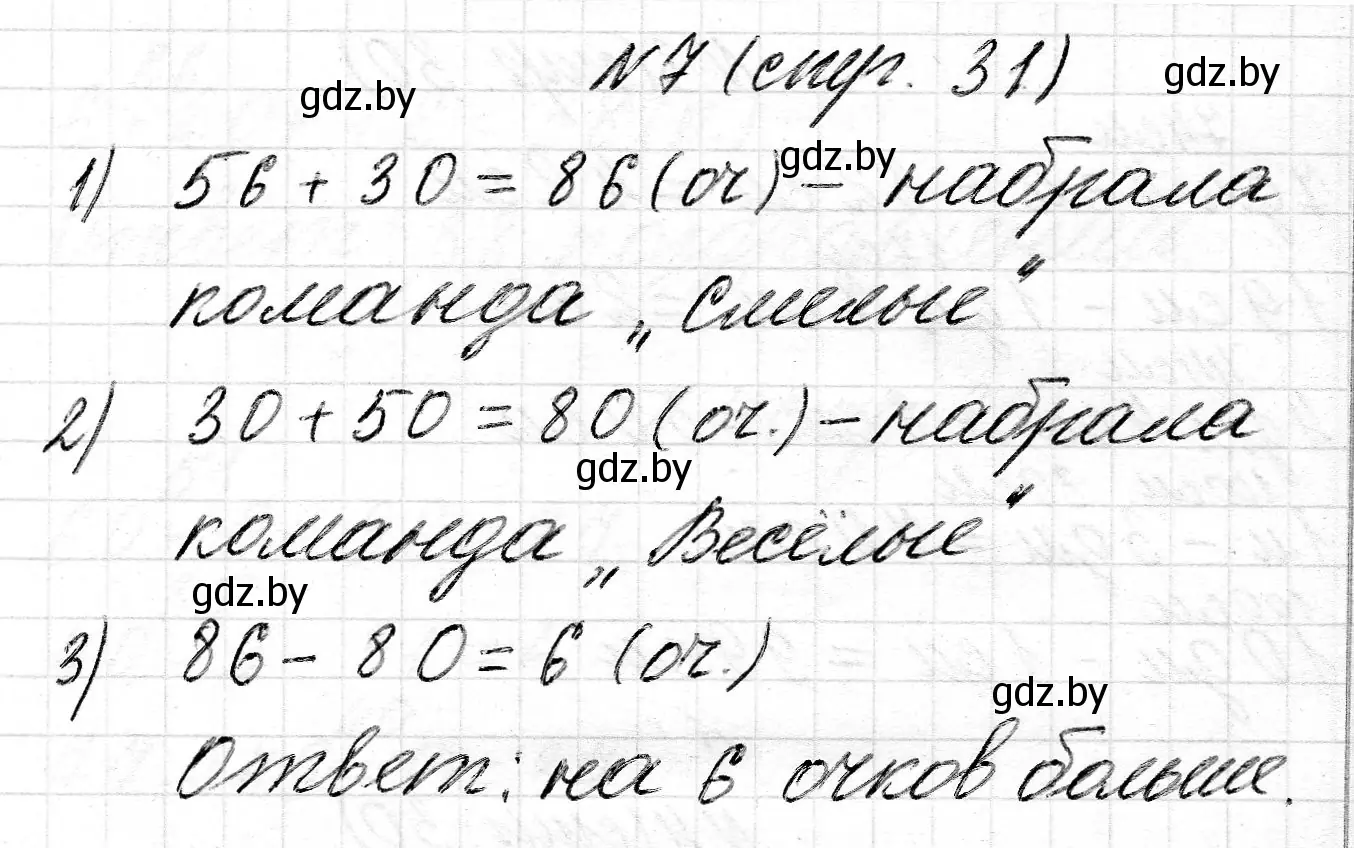 №7 (стр. 31)
gdz.by
gdz.by
1) 56 + 30 = 86 (оч) – набрала
gdz.by
команда „Смелые"
2) 30 + 50 = 80 (оч.) – набрала
gdz.by
команда „Весёлые"
gdz.by
3) 86 – 80 = 6 (оч.)
gdz.by
Ответ: на 6 очков больше.